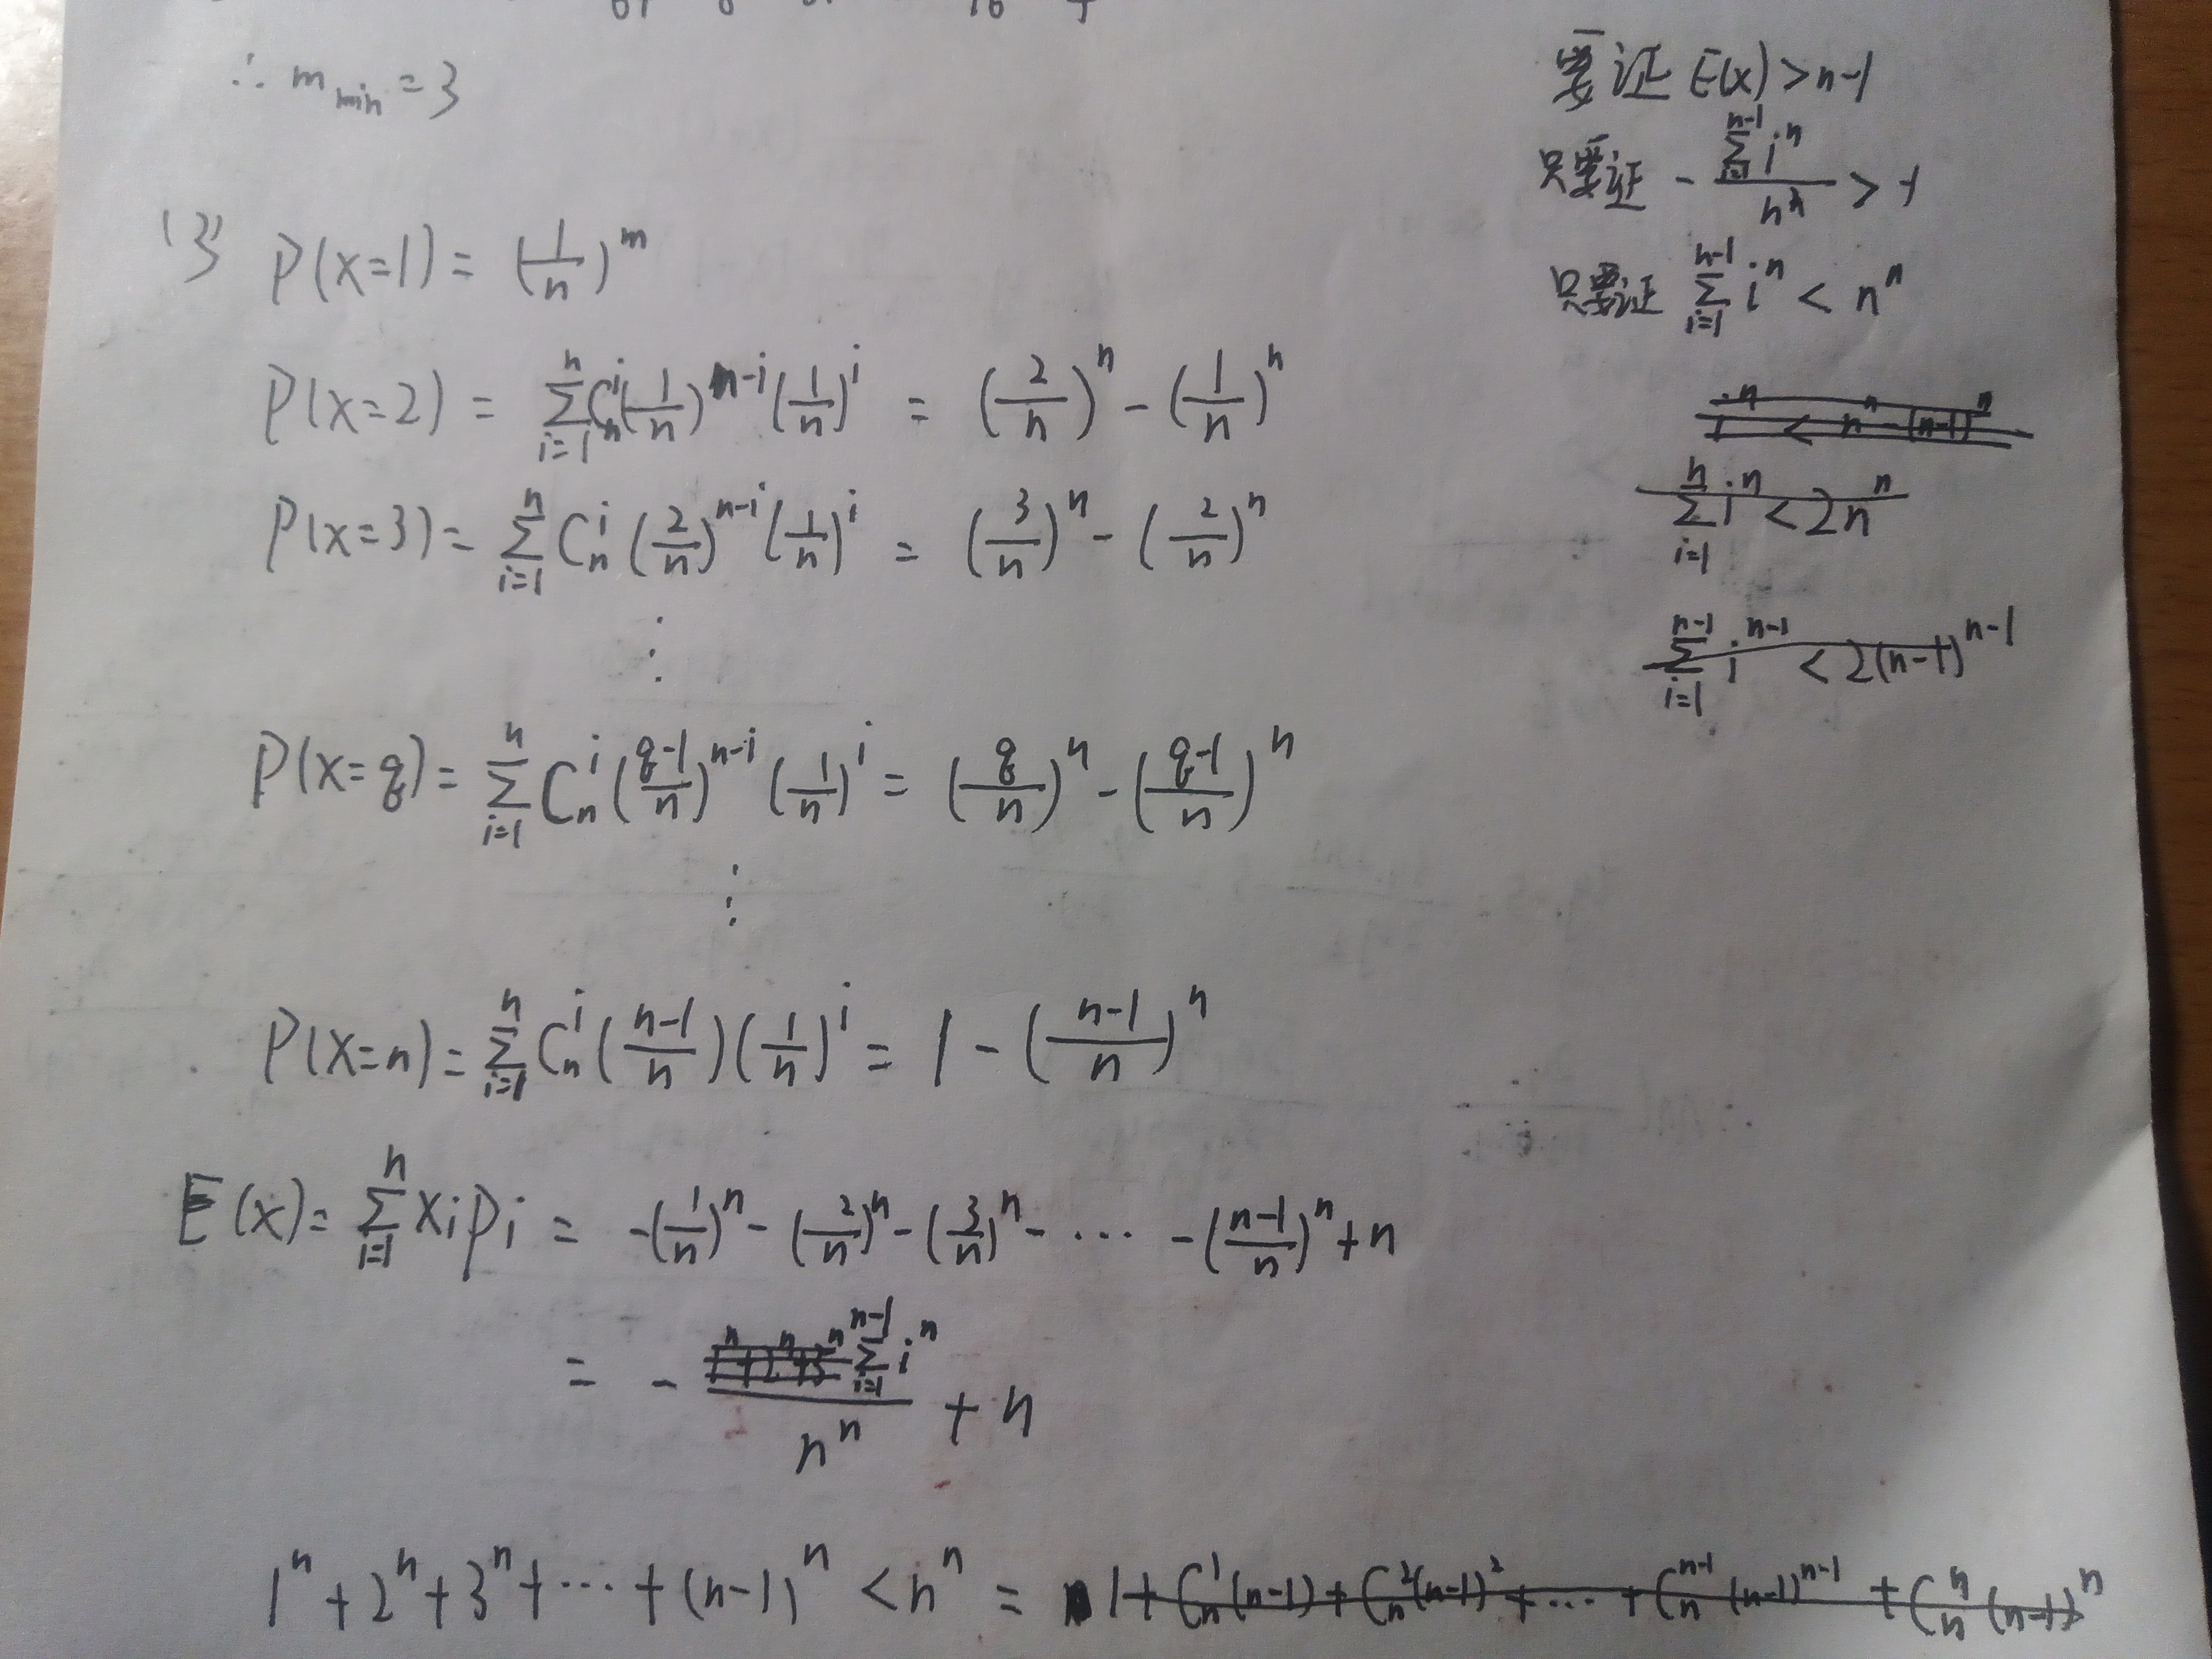 ∴ m_min = 3
(3) P(x=1) = (1/n)^m
P(x=2) = ∑_{i=1}^{n} C_n^i (1/n)^{n-i} (1/n)^i = (2/n)^n - (1/n)^n
P(x=3) = ∑_{i=1}^{n} C_n^i (2/n)^{n-i} (1/n)^i = (3/n)^n - (2/n)^n
⋮
P(x=q) = ∑_{i=1}^{n} C_n^i ((q-1)/n)^{n-i} (1/n)^i = (q/n)^n - ((q-1)/n)^n
⋮
P(x=n) = ∑_{i=1}^{n} C_n^i ((n-1)/n) (1/n)^i = 1 - ((n-1)/n)^n
E(x) = ∑_{i=1}^{n} x_i p_i = -(1/n)^n - (2/n)^n - (3/n)^n - ⋯ - ((n-1)/n)^n + n
= - (∑_{i=1}^{n-1} i^n)/n^n + n
1^n + 2^n + 3^n + ⋯ + (n-1)^n < n^n = 1 + C_n^1 (n-1) + C_n^2 (n-1)^2 + ⋯ + C_n^{n-1} (n-1)^{n-1} + C_n^n (n-1)^n
要证 E(x) > n-1
只要证 - (∑_{i=1}^{n-1} i^n)/n^n > -1
只要证 ∑_{i=1}^{n-1} i^n < n^n
i^n < n^n - (n-1)^n
∑_{i=1}^{n} i^n < 2n^n
∑_{i=1}^{n-1} i^{n-1} < 2(n-1)^{n-1}